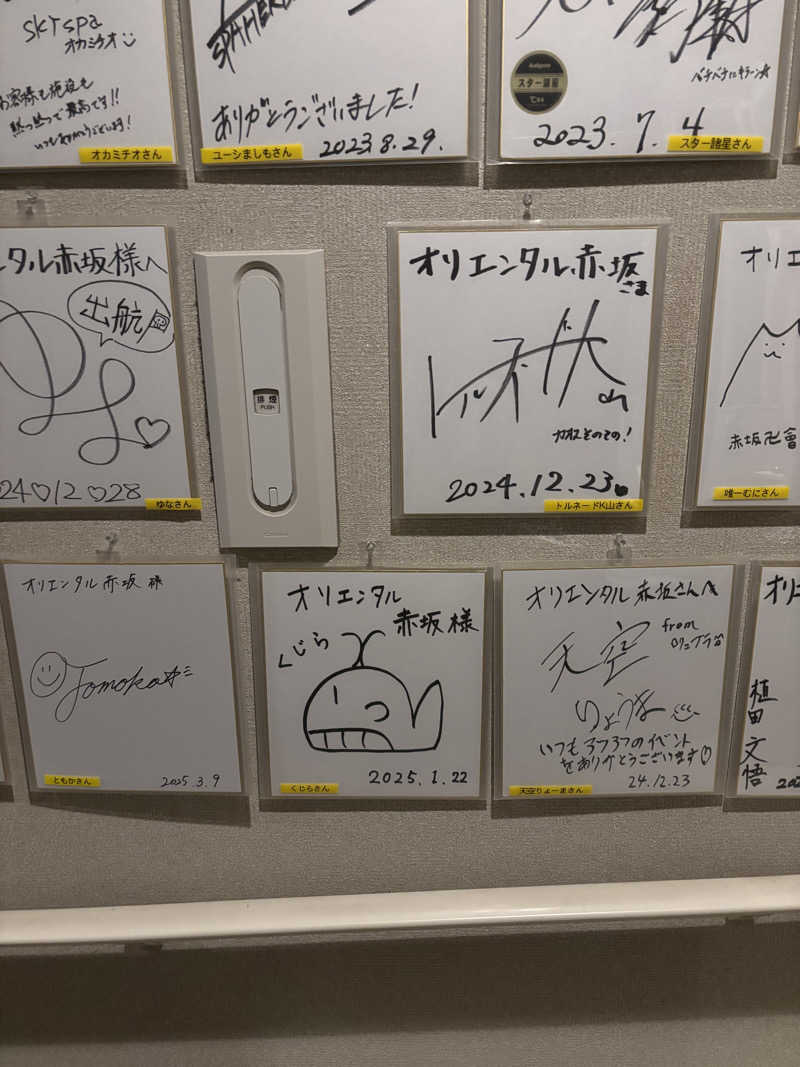 skyspa
オカミチオ
お客様も施設も
熱っ熱っで最高です!!
いつもありがとうございます!
オカミチオさん
ありがとうございました!
2023 8.29.
ユーシましもさん
スター諸星
バチバチにキラーン☆
2023.7.4
スター諸星さん
ンタル赤坂様へ
出航
24♡12♡28
ゆなさん
排煙
PUSH
オリエンタル赤坂
さま
トルネードK山
カオスそのもの!
2024.12.23
トルネードK山さん
オリエ
赤坂卍會
唯一むにさん
オリエンタル赤坂様
Tomoka
ともかさん
2025.3.9
オリエンタル
赤坂様
くじら
くじらさん
2025.1.22
オリエンタル赤坂さんへ
天空
from
りょうま
いつもアツアツのイベント
をありがとうございます♡
24.12.23
天空りょーまさん
オリエ
植田文悟
202